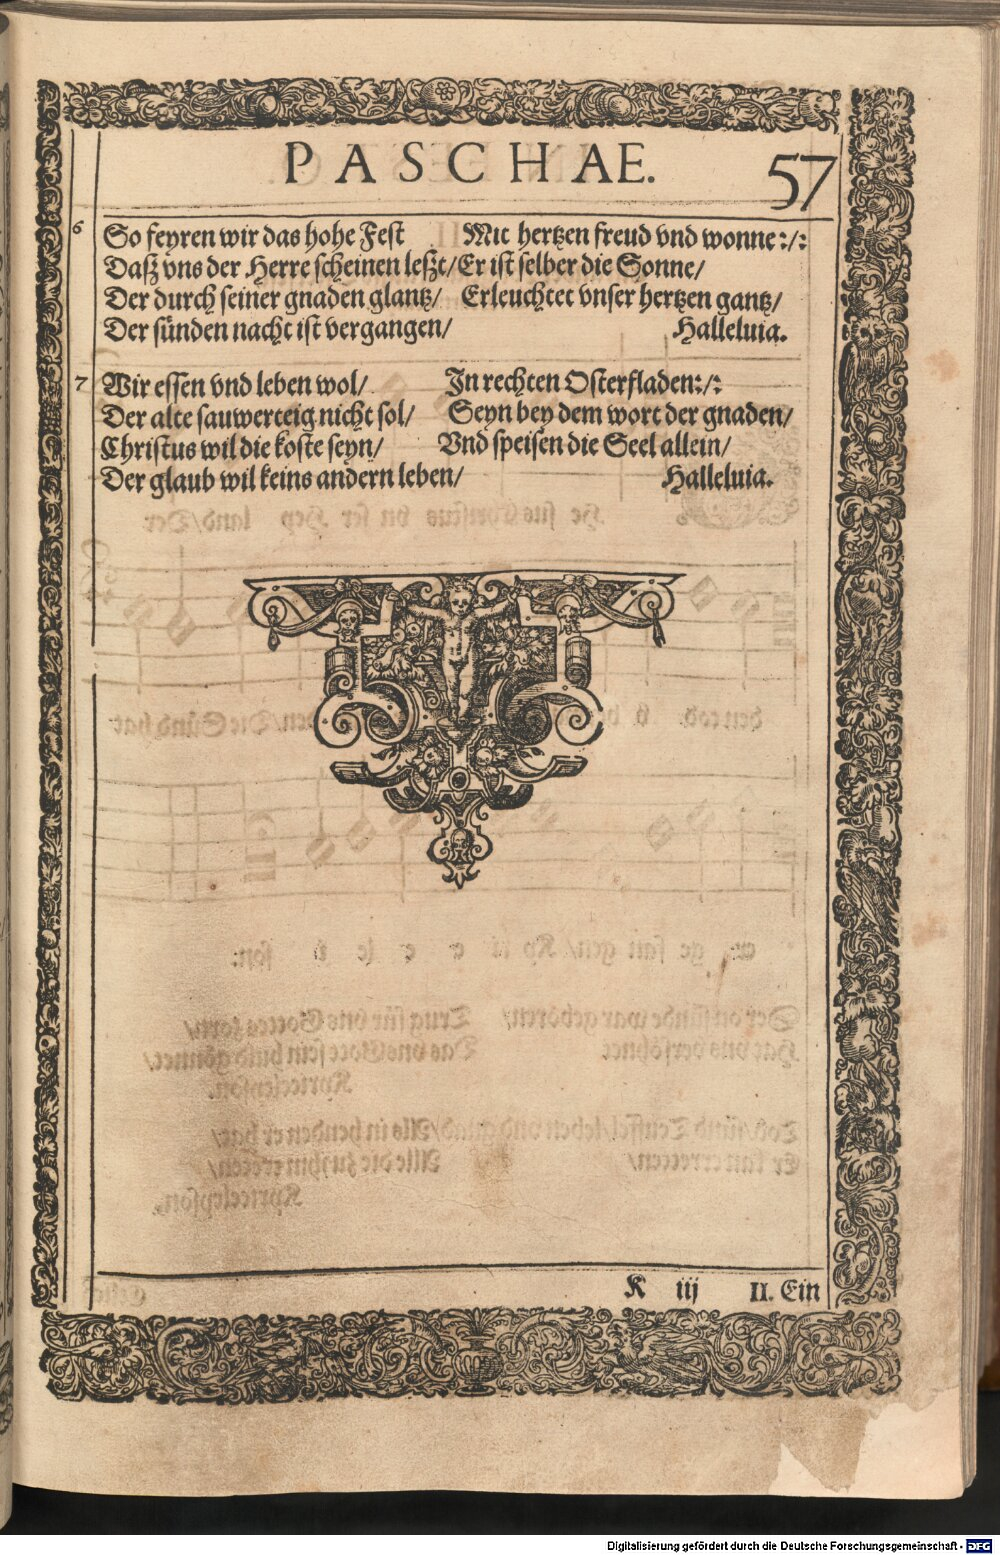 PASCHAE. 57
6 So feyren wir das hohe Fest Mit hertzen freud vnd wonne:/:
Daß vns der Herre scheinen leßt/ Er ist selber die Sonne/
Der durch seiner gnaden glantz/ Erleuchtet vnser hertzen gantz/
Der sünden nacht ist vergangen/ Halleluia.
7 Wir essen vnd leben wol/ In rechten Osterfladen:/:
Der alte sauwerteig nicht sol/ Seyn bey dem wort der gnaden/
Christus wil die koste seyn/ Vnd speisen die Seel allein/
Der glaub wil keins andern leben/ Halleluia.
K iij II. Ein
Digitalisierung gefördert durch die Deutsche Forschungsgemeinschaft - DFG